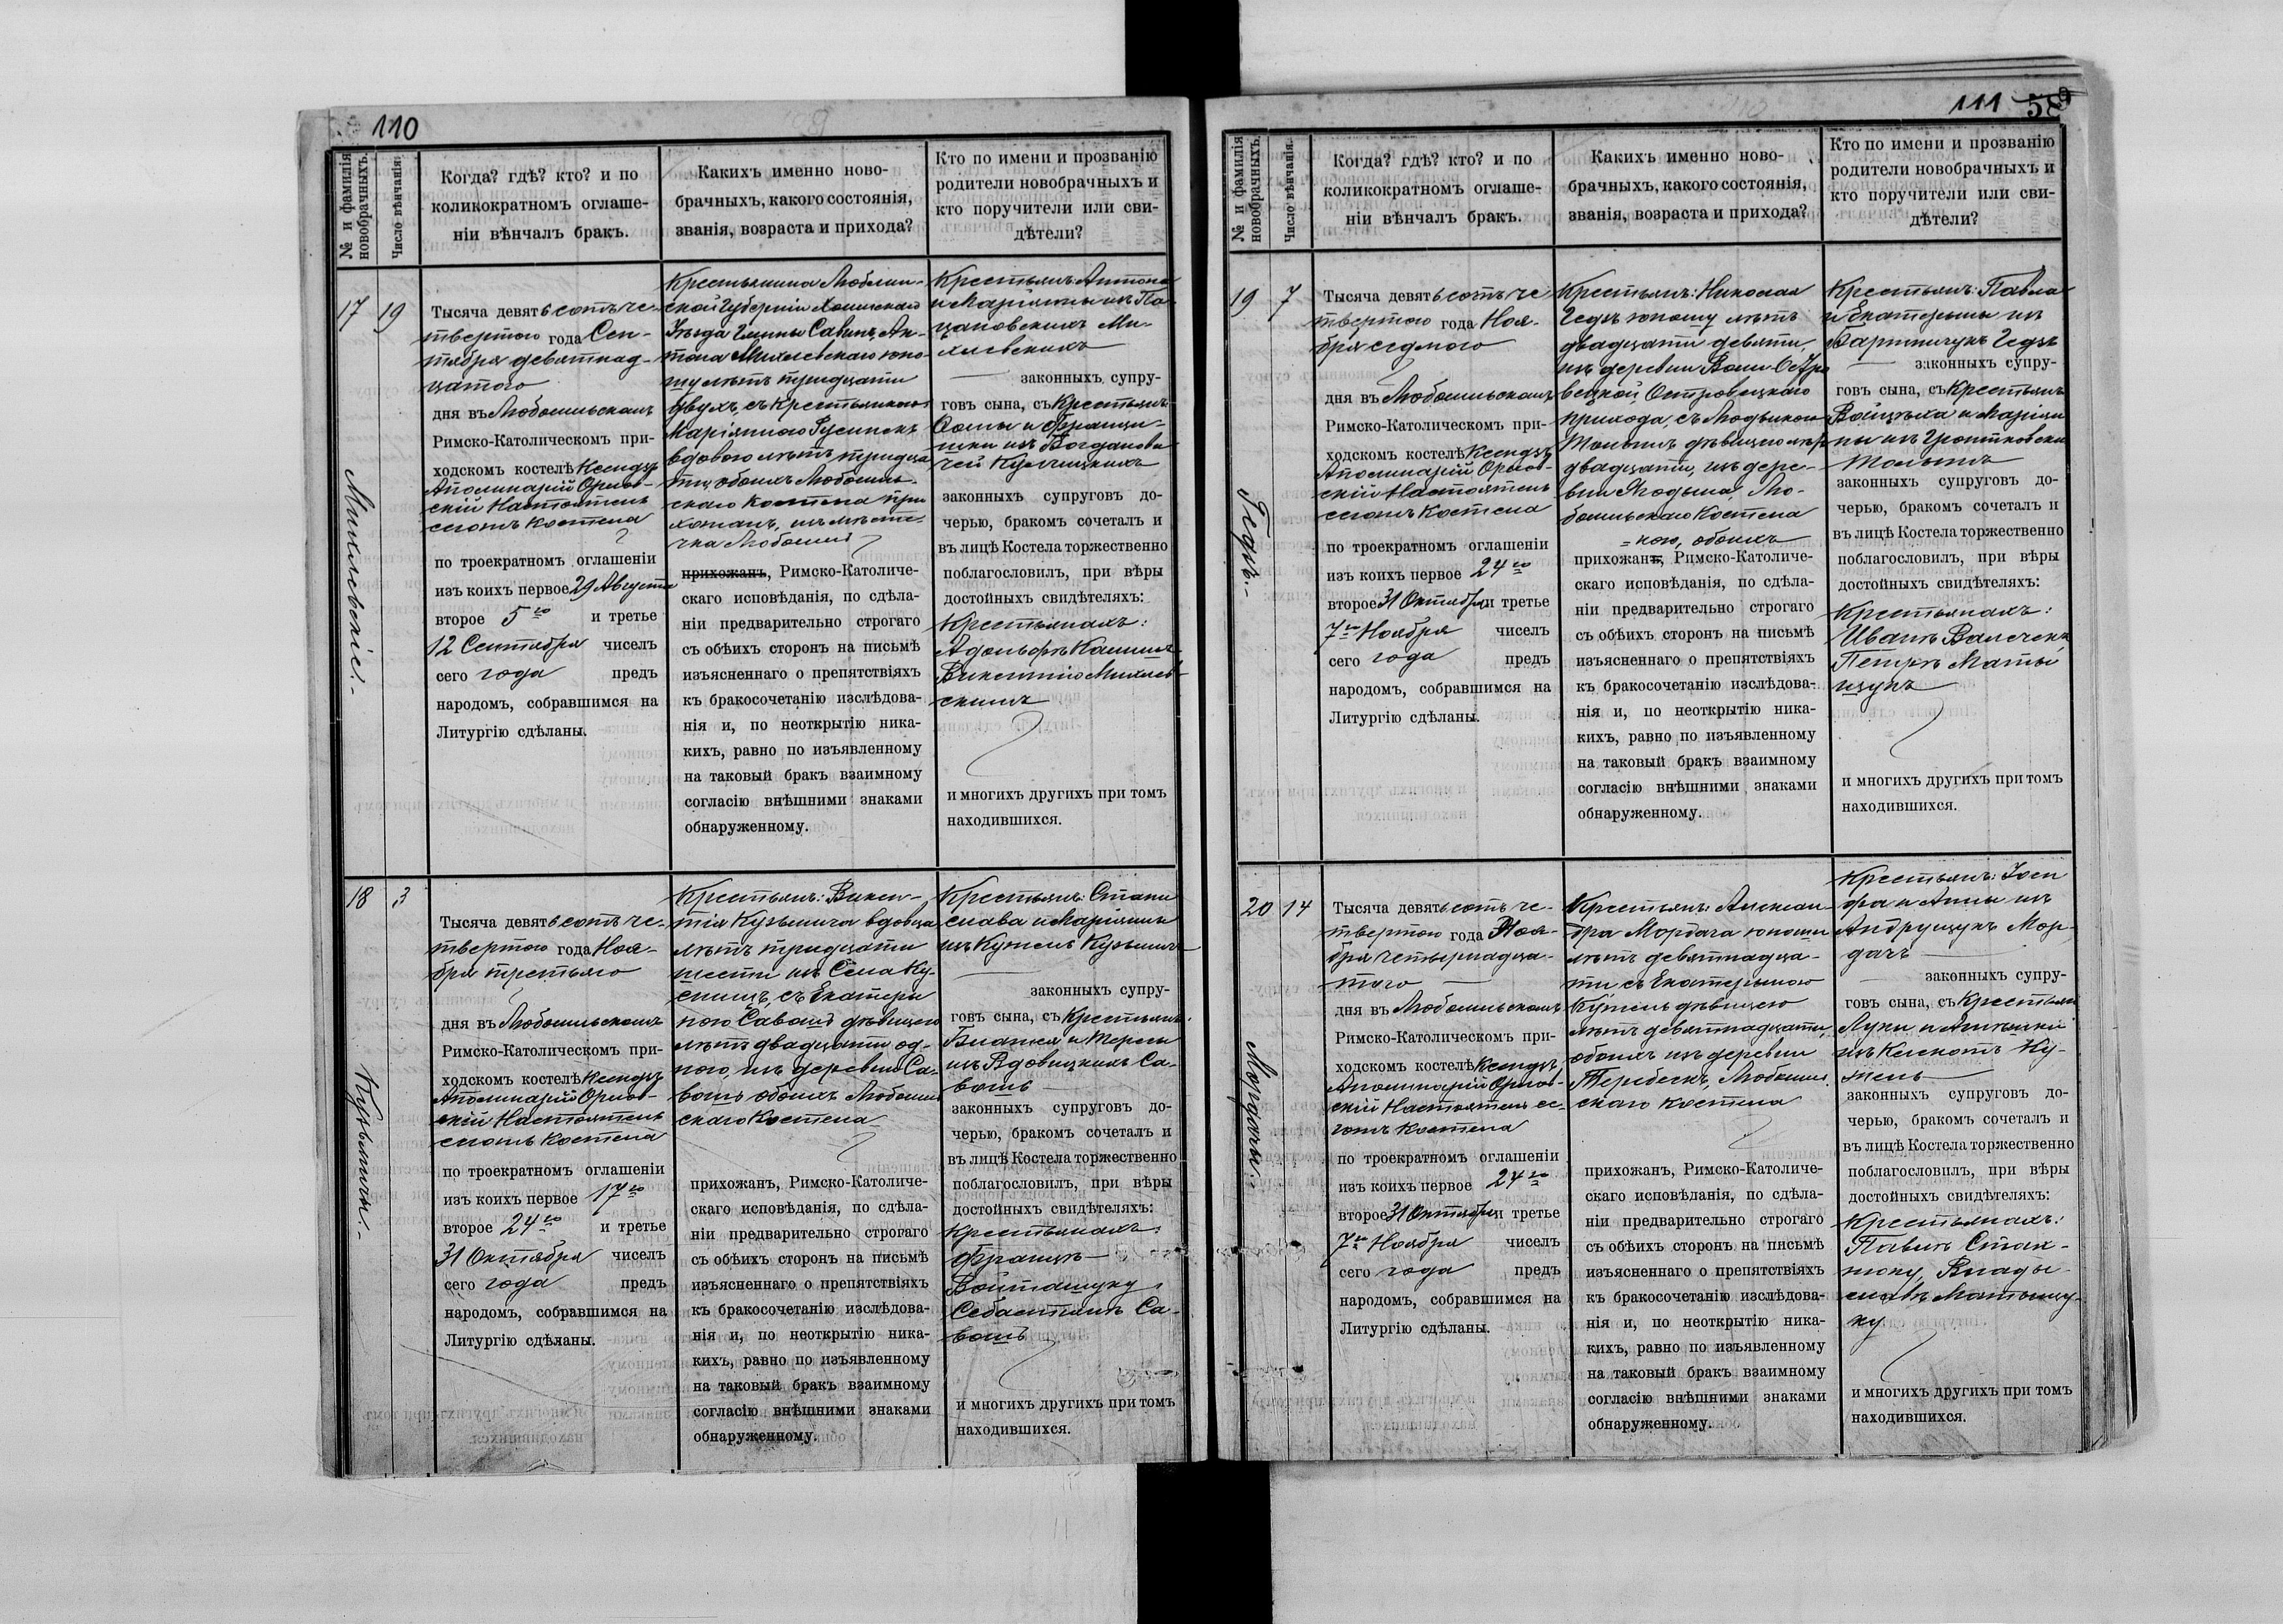 110
№ и фамилія
новобрачныхъ.
Число вѣнчанія.
Когда? гдѣ? кто? и по
коликократномъ оглаше-
ніи вѣнчалъ бракъ.
Какихъ именно ново-
брачныхъ, какого состоянія,
званія, возраста и прихода?
Кто по имени и прозванію
родители новобрачныхъ и
кто поручители или сви-
дѣтели?
17
19
Михлевскіе.-
Тысяча девятьсотъ че-
твертого года Сен-
тября девятнад-
цатого
дня въ Любомльскомъ
Римско-Католическомъ при-
ходскомъ костелѣ Ксендзъ
Аполинарій Орлов-
скій Настоятель
сегожъ Костела
по троекратномъ оглашеніи
изъ коихъ первое 29 Августа
второе 5го и третье
12 Сентября чиселъ
сего года предъ
народомъ, собравшимся на
Литургію сдѣланы.
Крестьянина Люблин-
ской Губерніи Холмскаго
Уѣзда Гмины Савинъ, Ан-
тона Михлевскаго юно-
шу лѣтъ тридцати
двухъ, съ крестьянкою
Маріанною Русинекъ
вдовою лѣтъ тридца
ти, обоихъ Любомль-
скаго Костела при
хожанъ, изъ мѣсте-
чка Любомля
прихожанъ, Римско-Католиче-
скаго исповѣданія, по сдѣла-
ніи предварительно строгаго
съ обѣихъ сторонъ на письмѣ
изъясненнаго о препятствіяхъ
къ бракосочетанію изслѣдова-
нія и, по неоткрытію ника-
кихъ, равно по изъявленному
на таковый бракъ взаимному
согласію внѣшними знаками
обнаруженному.
Крестьянъ: Антона
и Маріянны изъ Па-
цановскихъ Ми-
хлевскихъ
законныхъ супру-
говъ сына, съ Крестьянъ
Ѳомы и Францы-
шки изъ Богданови-
чей
законныхъ супруговъ до-
черью, бракомъ сочеталъ и
въ лицѣ Костела торжественно
поблагословилъ, при вѣры
достойныхъ свидѣтеляхъ:
Крестьянахъ:
Адольфъ
Викентію Михлев-
скимъ
и многихъ другихъ при томъ
находившихся.
18
3
Кузьмичи.-
Тысяча девятьсотъ че-
твертого года Ноя-
бря третьяго
дня въ Любомльскомъ
Римско-Католическомъ при-
ходскомъ костелѣ Ксендзъ
Аполинарій Орлов-
скій Настоятель
сегожъ Костела
по троекратномъ оглашеніи
изъ коихъ первое 17го
второе 24го и третье
31 Октября чиселъ
сего года предъ
народомъ, собравшимся на
Литургію сдѣланы.
Крестьянъ: Викен-
тія Кузьмича вдовца
лѣтъ тридцати
шести изъ Села Ку-
снищъ, съ Екатери
ною Саватъ дѣвицею
лѣтъ двадцати од-
ного, изъ деревни
обоихъ Любомль
скаго Костела
прихожанъ, Римско-Католиче-
скаго исповѣданія, по сдѣла-
ніи предварительно строгаго
съ обѣихъ сторонъ на письмѣ
изъясненнаго о препятствіяхъ
къ бракосочетанію изслѣдова-
нія и, по неоткрытію ника-
кихъ, равно по изъявленному
на таковый бракъ взаимному
согласію внѣшними знаками
обнаруженному.
Крестьянъ: Стани
слава и Маріянны
изъ Кужель Кузьмичъ
законныхъ супру-
говъ сына, съ Крестьянъ:
Блажея и Терезы
изъ Вдовицкихъ
законныхъ супруговъ до-
черью, бракомъ сочеталъ и
въ лицѣ Костела торжественно
поблагословилъ, при вѣры
достойныхъ свидѣтеляхъ:
Крестьянахъ:
Францъ
Войташуку,
Себастіанъ
и многихъ другихъ при томъ
находившихся.
111
589
№ и фамилія
новобрачныхъ.
Число вѣнчанія.
Когда? гдѣ? кто? и по
коликократномъ оглаше-
ніи вѣнчалъ бракъ.
Какихъ именно ново-
брачныхъ, какого состоянія,
званія, возраста и прихода?
Кто по имени и прозванію
родители новобрачныхъ и
кто поручители или сви-
дѣтели?
19
7
Гедзъ.-
Тысяча девятьсотъ че-
твертого года Ноя-
бря седмого
дня въ Любомльскомъ
Римско-Католическомъ при-
ходскомъ костелѣ Ксендзъ
Аполинарій Орлов-
скій Настоятель
сегожъ Костела
по троекратномъ оглашеніи
изъ коихъ первое 24го
второе 31 Октября и третье
7го Ноября чиселъ
сего года предъ
народомъ, собравшимся на
Литургію сдѣланы.
Крестьянъ: Николая
Гедзъ юношу лѣтъ
двадцати девяти,
изъ деревни Воли Остро
вецкой Островецкаго
прихода, съ
дѣвицею лѣтъ
двадцати, изъ дере-
вни Лю-
бомльскаго Костела
=ною, обоихъ
прихожанъ, Римско-Католиче-
скаго исповѣданія, по сдѣла-
ніи предварительно строгаго
съ обѣихъ сторонъ на письмѣ
изъясненнаго о препятствіяхъ
къ бракосочетанію изслѣдова-
нія и, по неоткрытію ника-
кихъ, равно по изъявленному
на таковый бракъ взаимному
согласію внѣшними знаками
обнаруженному.
Крестьянъ: Павла
и Екатерины изъ
Бартничукъ Гедзъ
законныхъ супру-
говъ сына, съ Крестьянъ
Войцѣха и Маріан
ны изъ
законныхъ супруговъ до-
черью, бракомъ сочеталъ и
въ лицѣ Костела торжественно
поблагословилъ, при вѣры
достойныхъ свидѣтеляхъ:
Крестьянахъ:
Иванъ
Петръ Маты
щукъ
и многихъ другихъ при томъ
находившихся.
20
14
Мордачы.-
Тысяча девятьсотъ че-
твертого года Ноя-
бря четырнадца-
того
дня въ Любомльскомъ
Римско-Католическомъ при-
ходскомъ костелѣ Ксендзъ
Аполинарій Орлов-
скій Настоятель се-
гожъ Костела
по троекратномъ оглашеніи
изъ коихъ первое 24го
второе 31 Октября и третье
7го Ноября чиселъ
сего года предъ
народомъ, собравшимся на
Литургію сдѣланы.
Крестьянъ: Алексан
дра Мордача юноши
лѣтъ девятнадца-
ти съ Екатериною
Кужель дѣвицею
лѣтъ девятнадцати,
обоихъ изъ деревни
Теребеекъ, Любомль
скаго Костела
прихожанъ, Римско-Католиче-
скаго исповѣданія, по сдѣла-
ніи предварительно строгаго
съ обѣихъ сторонъ на письмѣ
изъясненнаго о препятствіяхъ
къ бракосочетанію изслѣдова-
нія и, по неоткрытію ника-
кихъ, равно по изъявленному
на таковый бракъ взаимному
согласію внѣшними знаками
обнаруженному.
Крестьянъ: Іоси
фа и Анны изъ
Андрущукъ Мор-
дачъ
законныхъ супру-
говъ сына, съ Крестьян
Луки и
изъ Ку-
жель
законныхъ супруговъ до-
черью, бракомъ сочеталъ и
въ лицѣ Костела торжественно
поблагословилъ, при вѣры
достойныхъ свидѣтеляхъ:
Крестьянахъ:
Павлъ Стах-
нюку, Влады-
славъ Матыщу-
ку
и многихъ другихъ при томъ
находившихся.